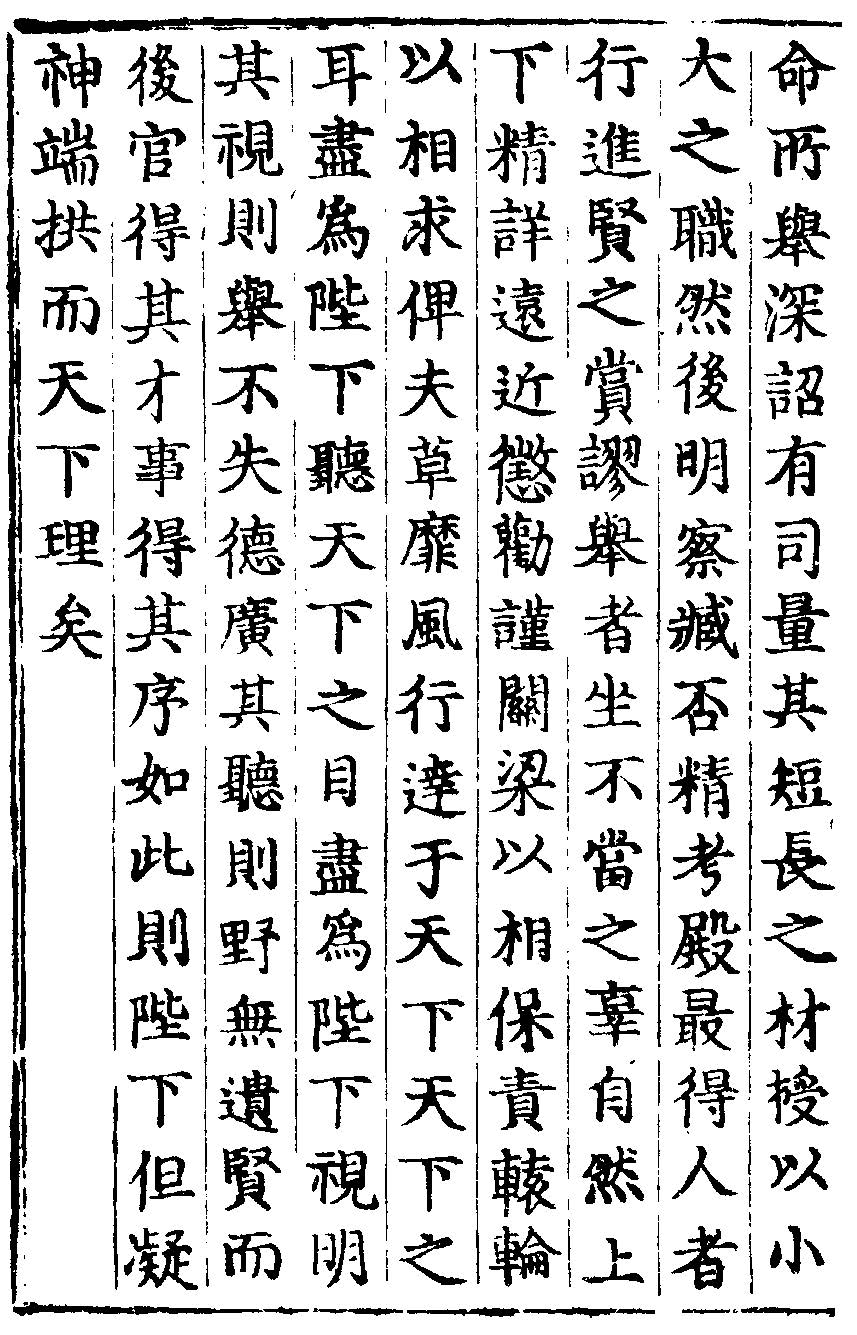 命所舉深詔有司量其短長之材授以小
大之職然後明察臧否精考殿最得人者
行進賢之賞謬舉者坐不當之辜自然上
下精詳遠近懲勸謹關梁以相保責轅輪
以相求俾夫草靡風行達于天下天下之
耳盡爲陛下聽天下之目盡爲陛下視明
其視則舉不失德廣其聽則野無遺賢而
後官得其才事得其序如此則陛下但凝
神端拱而天下理矣